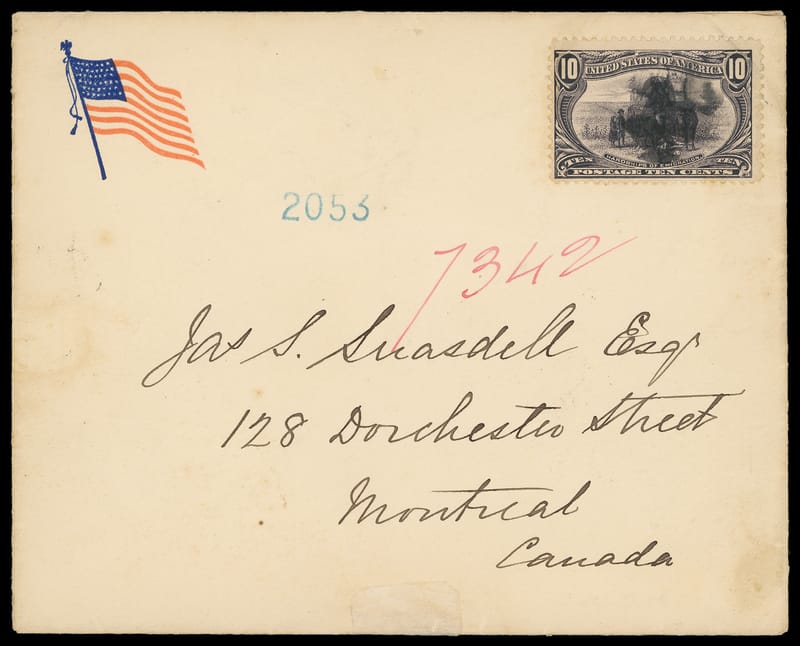 10 UNITED STATES OF AMERICA 10
TEN HARDSHIPS OF EMIGRATION. TEN
POSTAGE TEN CENTS
2053
7342
Jas S. Snasdell Esqr
128 Dorchester Street
Montreal
Canada